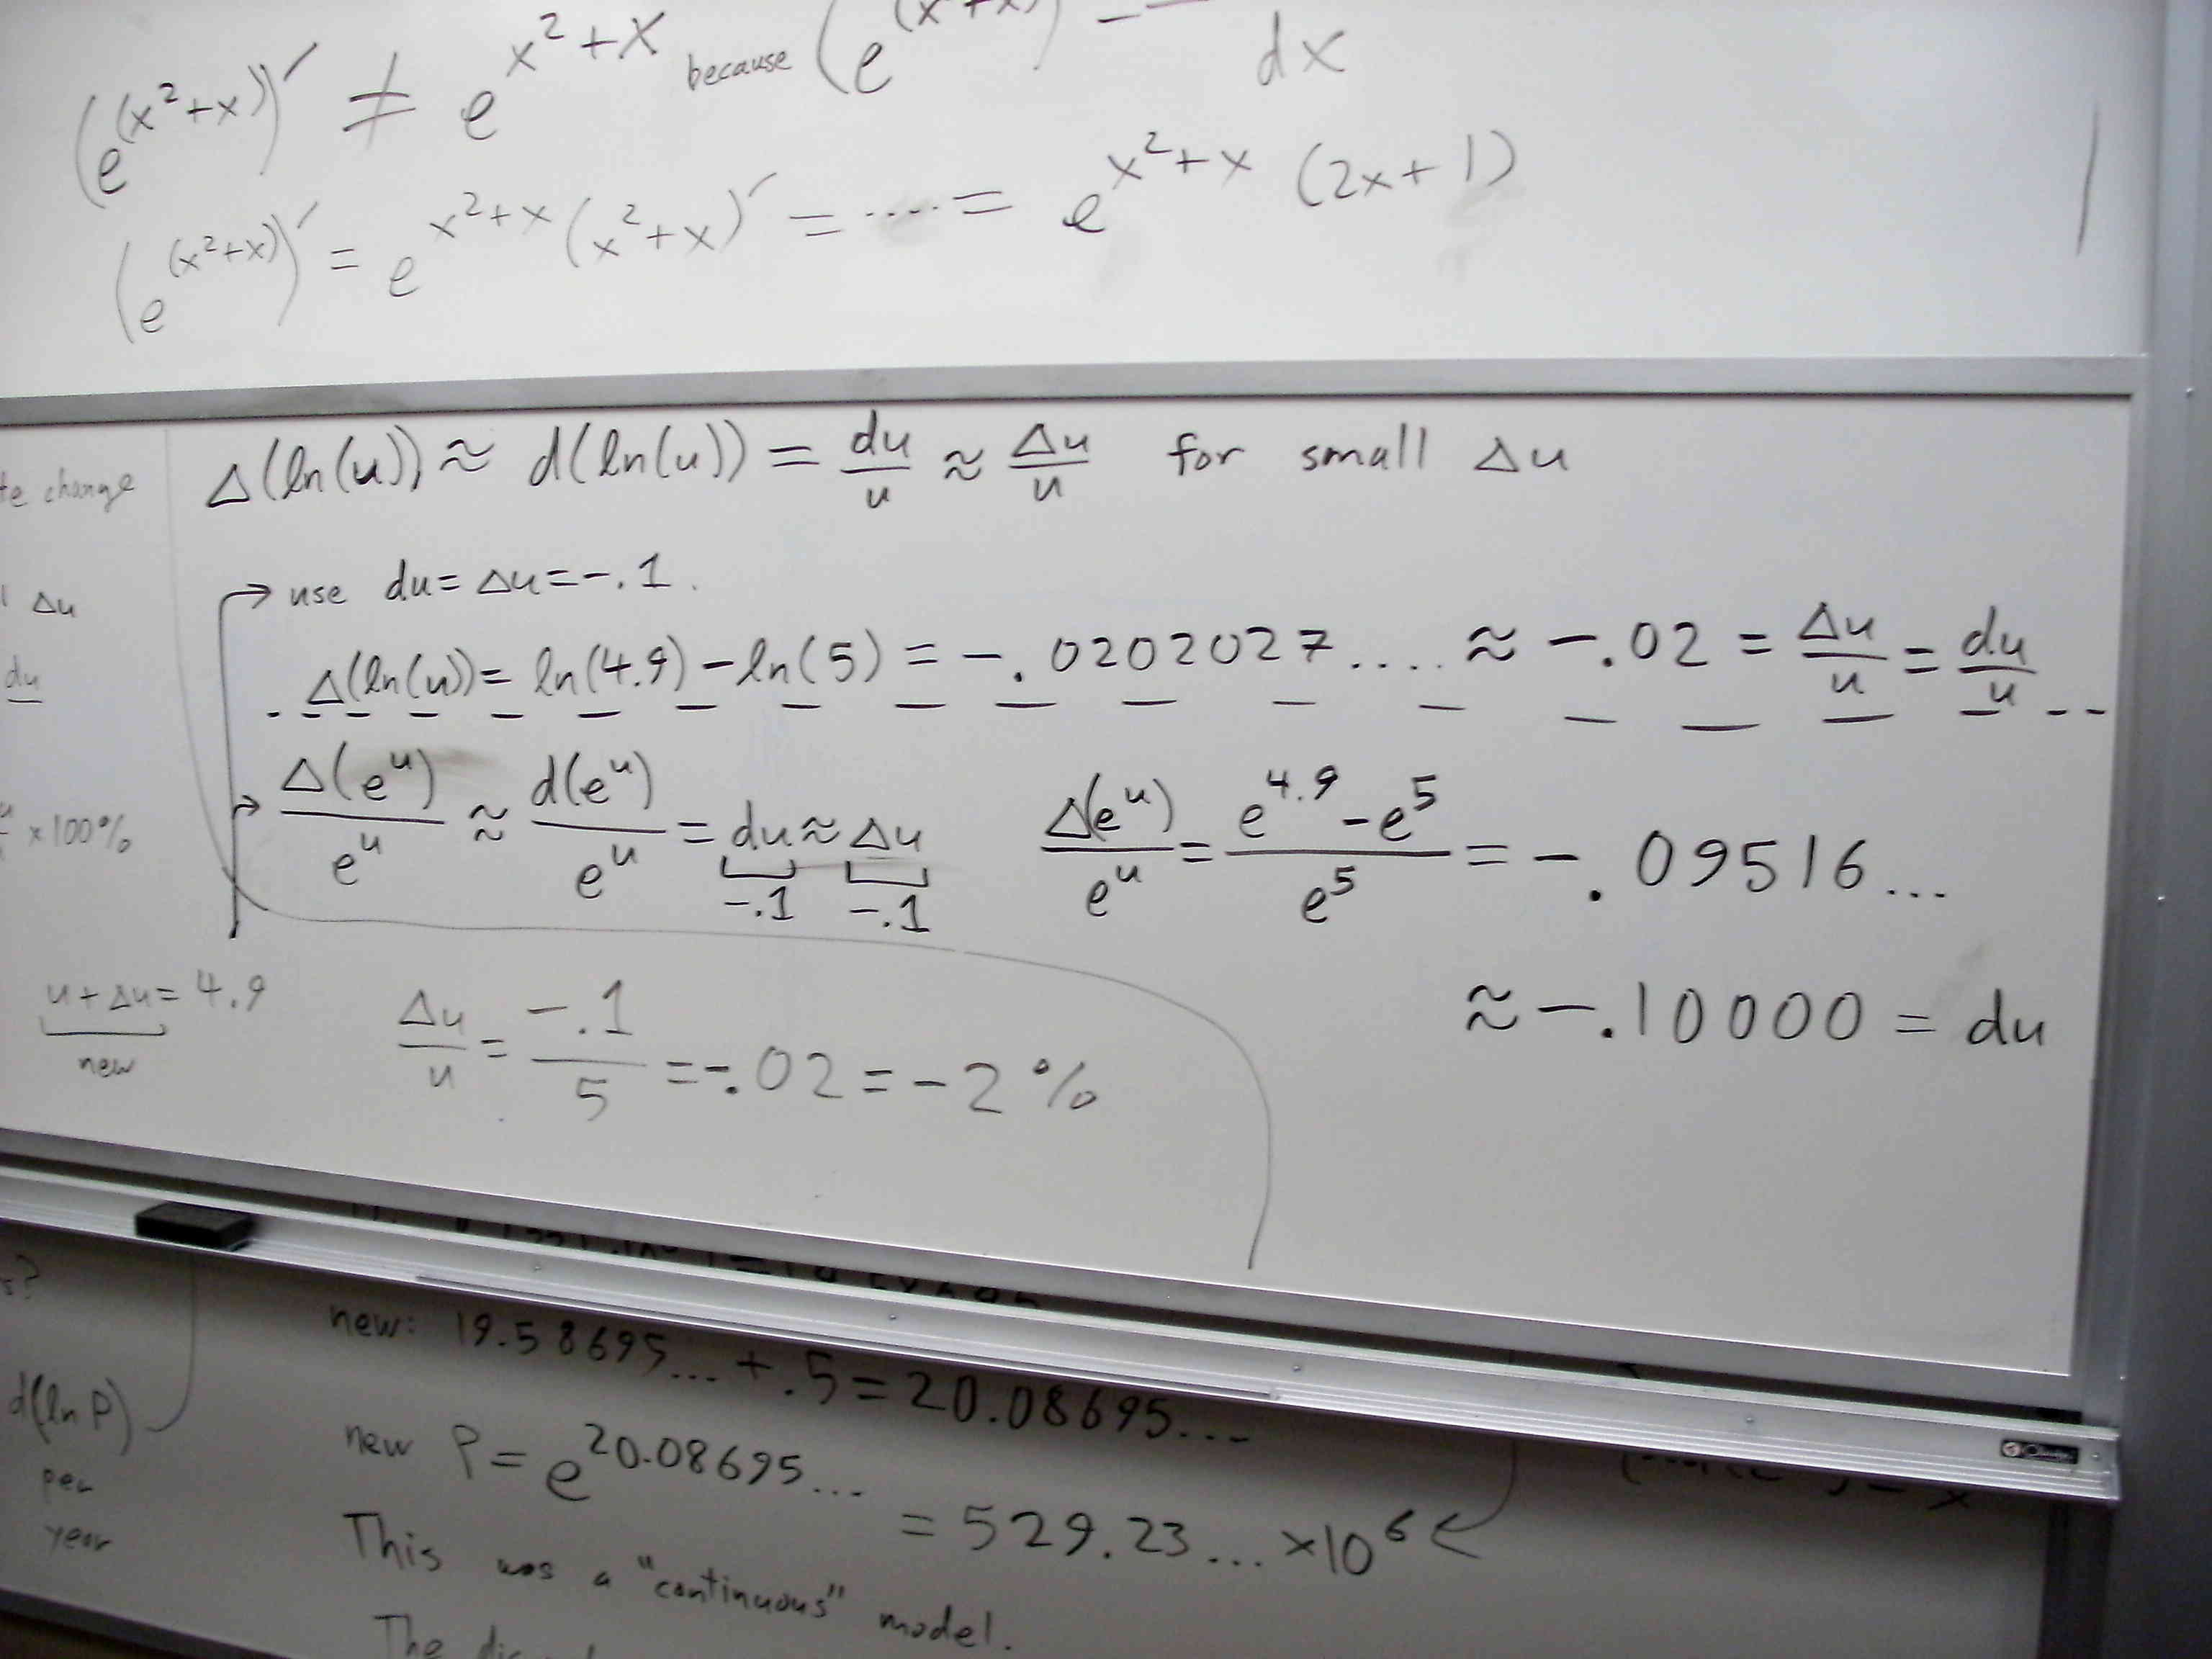 (e^(x²+x))′ ≠ e^(x²+x) because (e^(x²+x)) dx
(e^(x²+x))′ = e^(x²+x) (x²+x)′ = ..... = e^(x²+x) (2x+1)
te change
Δ(ln(u)) ≈ d(ln(u)) = du/u ≈ Δu/u for small Δu
→ use du = Δu = -.1.
Δu
Δ(ln(u)) = ln(4.9) - ln(5) = -.0202027.... ≈ -.02 = Δu/u = du/u
du
→ Δ(e^u)/e^u ≈ d(e^u)/e^u = du ≈ Δu
-.1 -.1
Δ(e^u)/e^u = (e^4.9 - e^5)/e^5 = -.09516...
×100%
≈ -.10000 = du
u + Δu = 4.9
new
Δu/u = -.1/5 = -.02 = -2%
s?
new: 19.58695... + .5 = 20.08695...
d(ln P)
per
year
new P = e^20.08695...
= 529.23... ×10⁶ ←
This was a "continuous" model.
The